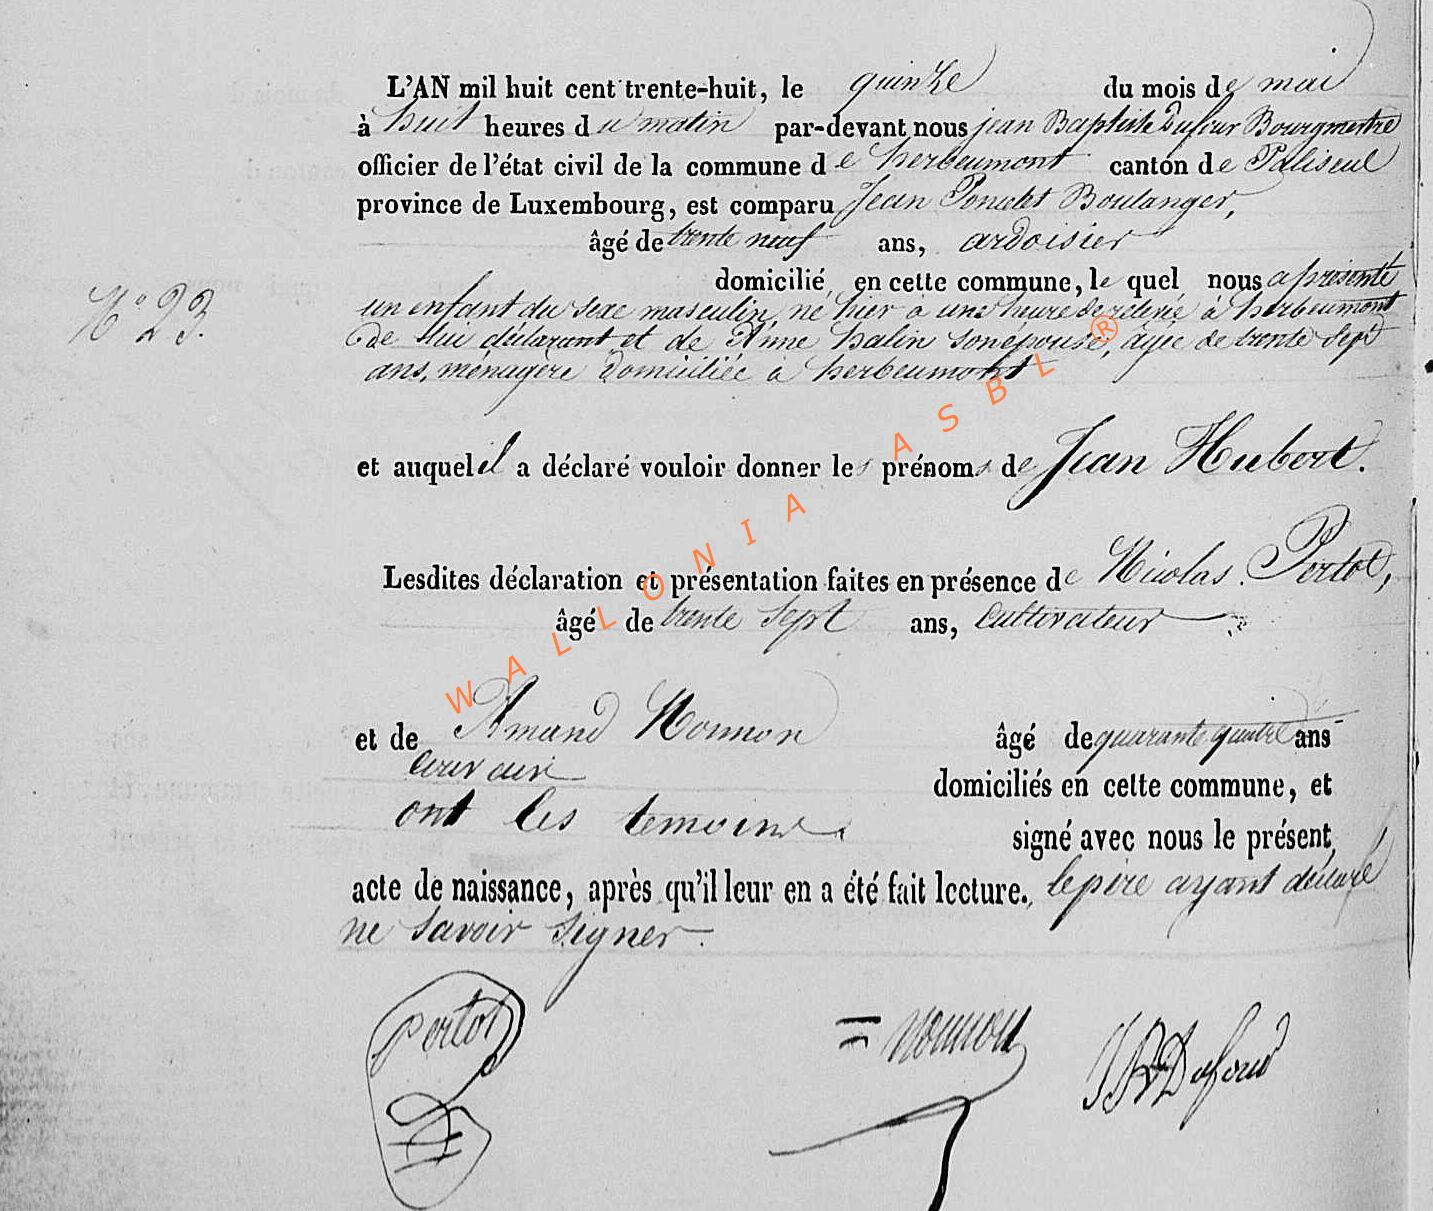 L'AN mil huit cent trente-huit, le quinze du mois de mai
à huit heures du matin par-devant nous jean Baptiste Dufour Bourgmestre
officier de l'état civil de la commune de herbeumont canton de Paliseul
province de Luxembourg, est comparu Jean Poncelet Boulanger,
âgé de trente neuf ans, ardoisier
domicilié en cette commune, le quel nous a présenté
N° 23.
un enfant du sexe masculin, né hier à une heure de relevée à herbeumont
de lui déclarant et de Anne halin son épouse, agée de trente Sept
ans, ménagère domiciliée a herbeumont
et auquel il a déclaré vouloir donner les prénoms de Jean Hubert.
Lesdites déclaration et présentation faites en présence de Nicolas Pertot,
âgé de trente Sept ans, Cultivateur
et de Amand Nonnon âgé de quarante quatre ans
domiciliés en cette commune, et
ont les temoins signé avec nous le présent
acte de naissance, après qu'il leur en a été fait lecture. le père ayant déclaré
ne Savoir Signer.
pertot Nonnon JB Dufour
WALLONIA ASBL ®